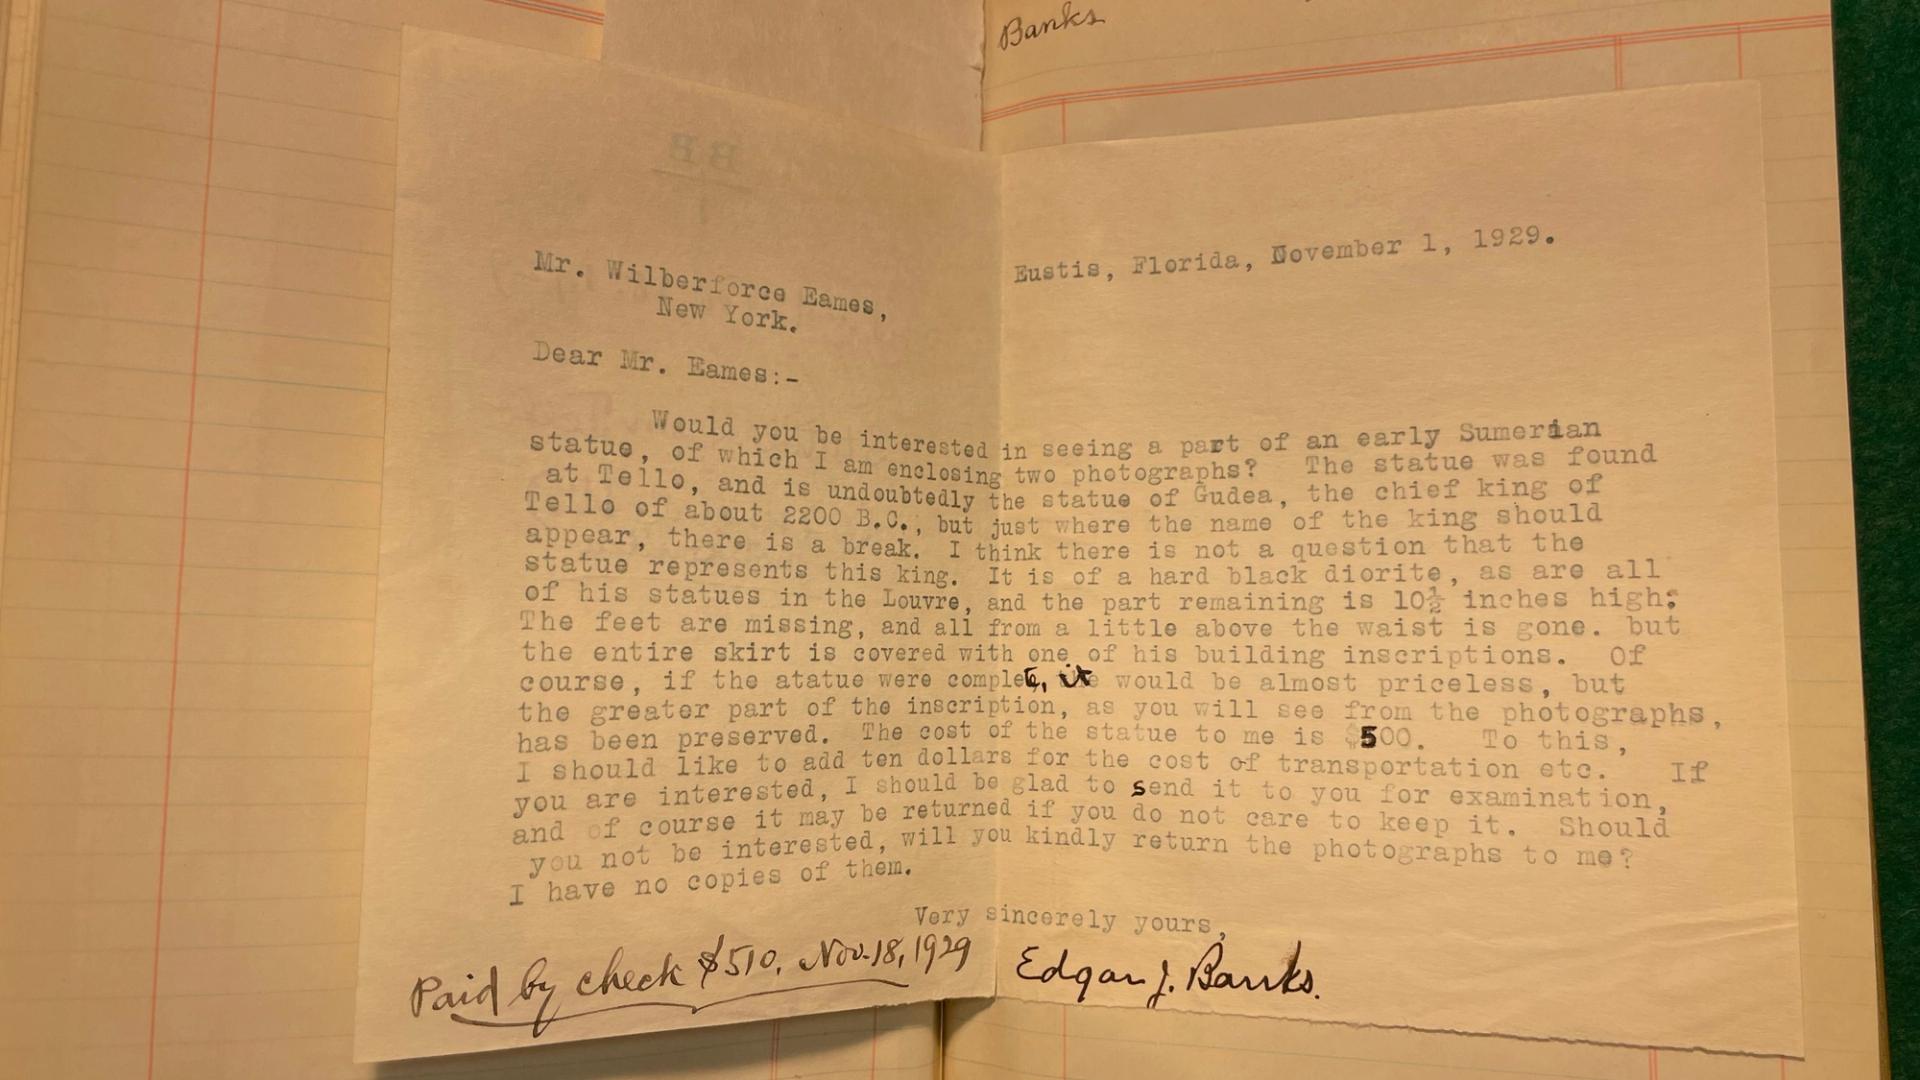 Banks
Eustis, Florida, November 1, 1929.
Mr. Wilberforce Eames,
New York.
Dear Mr. Eames:-
Would you be interested in seeing a part of an early Sumerian
statue, of which I am enclosing two photographs? The statue was found
at Tello, and is undoubtedly the statue of Gudea, the chief king of
Tello of about 2200 B.C., but just where the name of the king should
appear, there is a break. I think there is not a question that the
statue represents this king. It is of a hard black diorite, as are all
of his statues in the Louvre, and the part remaining is 10½ inches high.
The feet are missing, and all from a little above the waist is gone. but
the entire skirt is covered with one of his building inscriptions. Of
course, if the atatue were complet, it would be almost priceless, but
the greater part of the inscription, as you will see from the photographs,
has been preserved. The cost of the statue to me is $500. To this,
I should like to add ten dollars for the cost of transportation etc. If
you are interested, I should be glad to send it to you for examination,
and of course it may be returned if you do not care to keep it. Should
you not be interested, will you kindly return the photographs to me?
I have no copies of them.
Very sincerely yours,
Edgar J. Banks.
Paid by check $510, Nov. 18, 1929